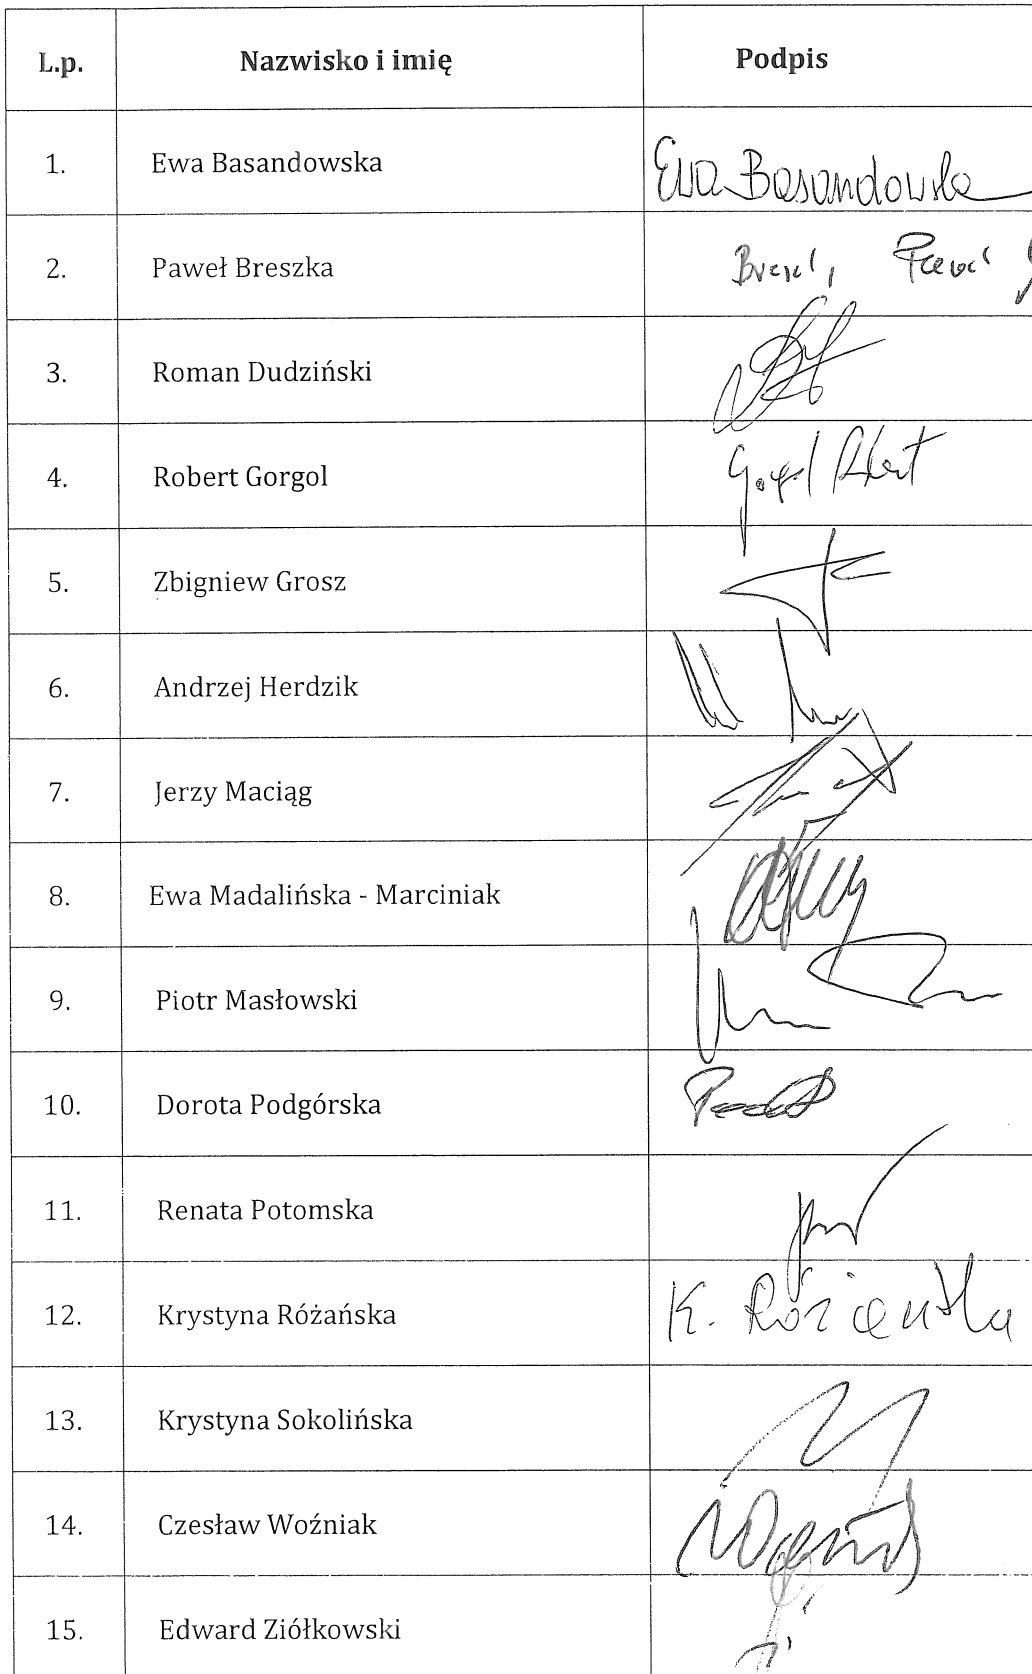 L.p. Nazwisko i imię Podpis
1. Ewa Basandowska Ewa Basandowska
2. Paweł Breszka
3. Roman Dudziński
4. Robert Gorgol Gorgol Robert
5. Zbigniew Grosz
6. Andrzej Herdzik
7. Jerzy Maciąg
8. Ewa Madalińska - Marciniak
9. Piotr Masłowski
10. Dorota Podgórska
11. Renata Potomska
12. Krystyna Różańska K. Różańska
13. Krystyna Sokolińska
14. Czesław Woźniak
15. Edward Ziółkowski